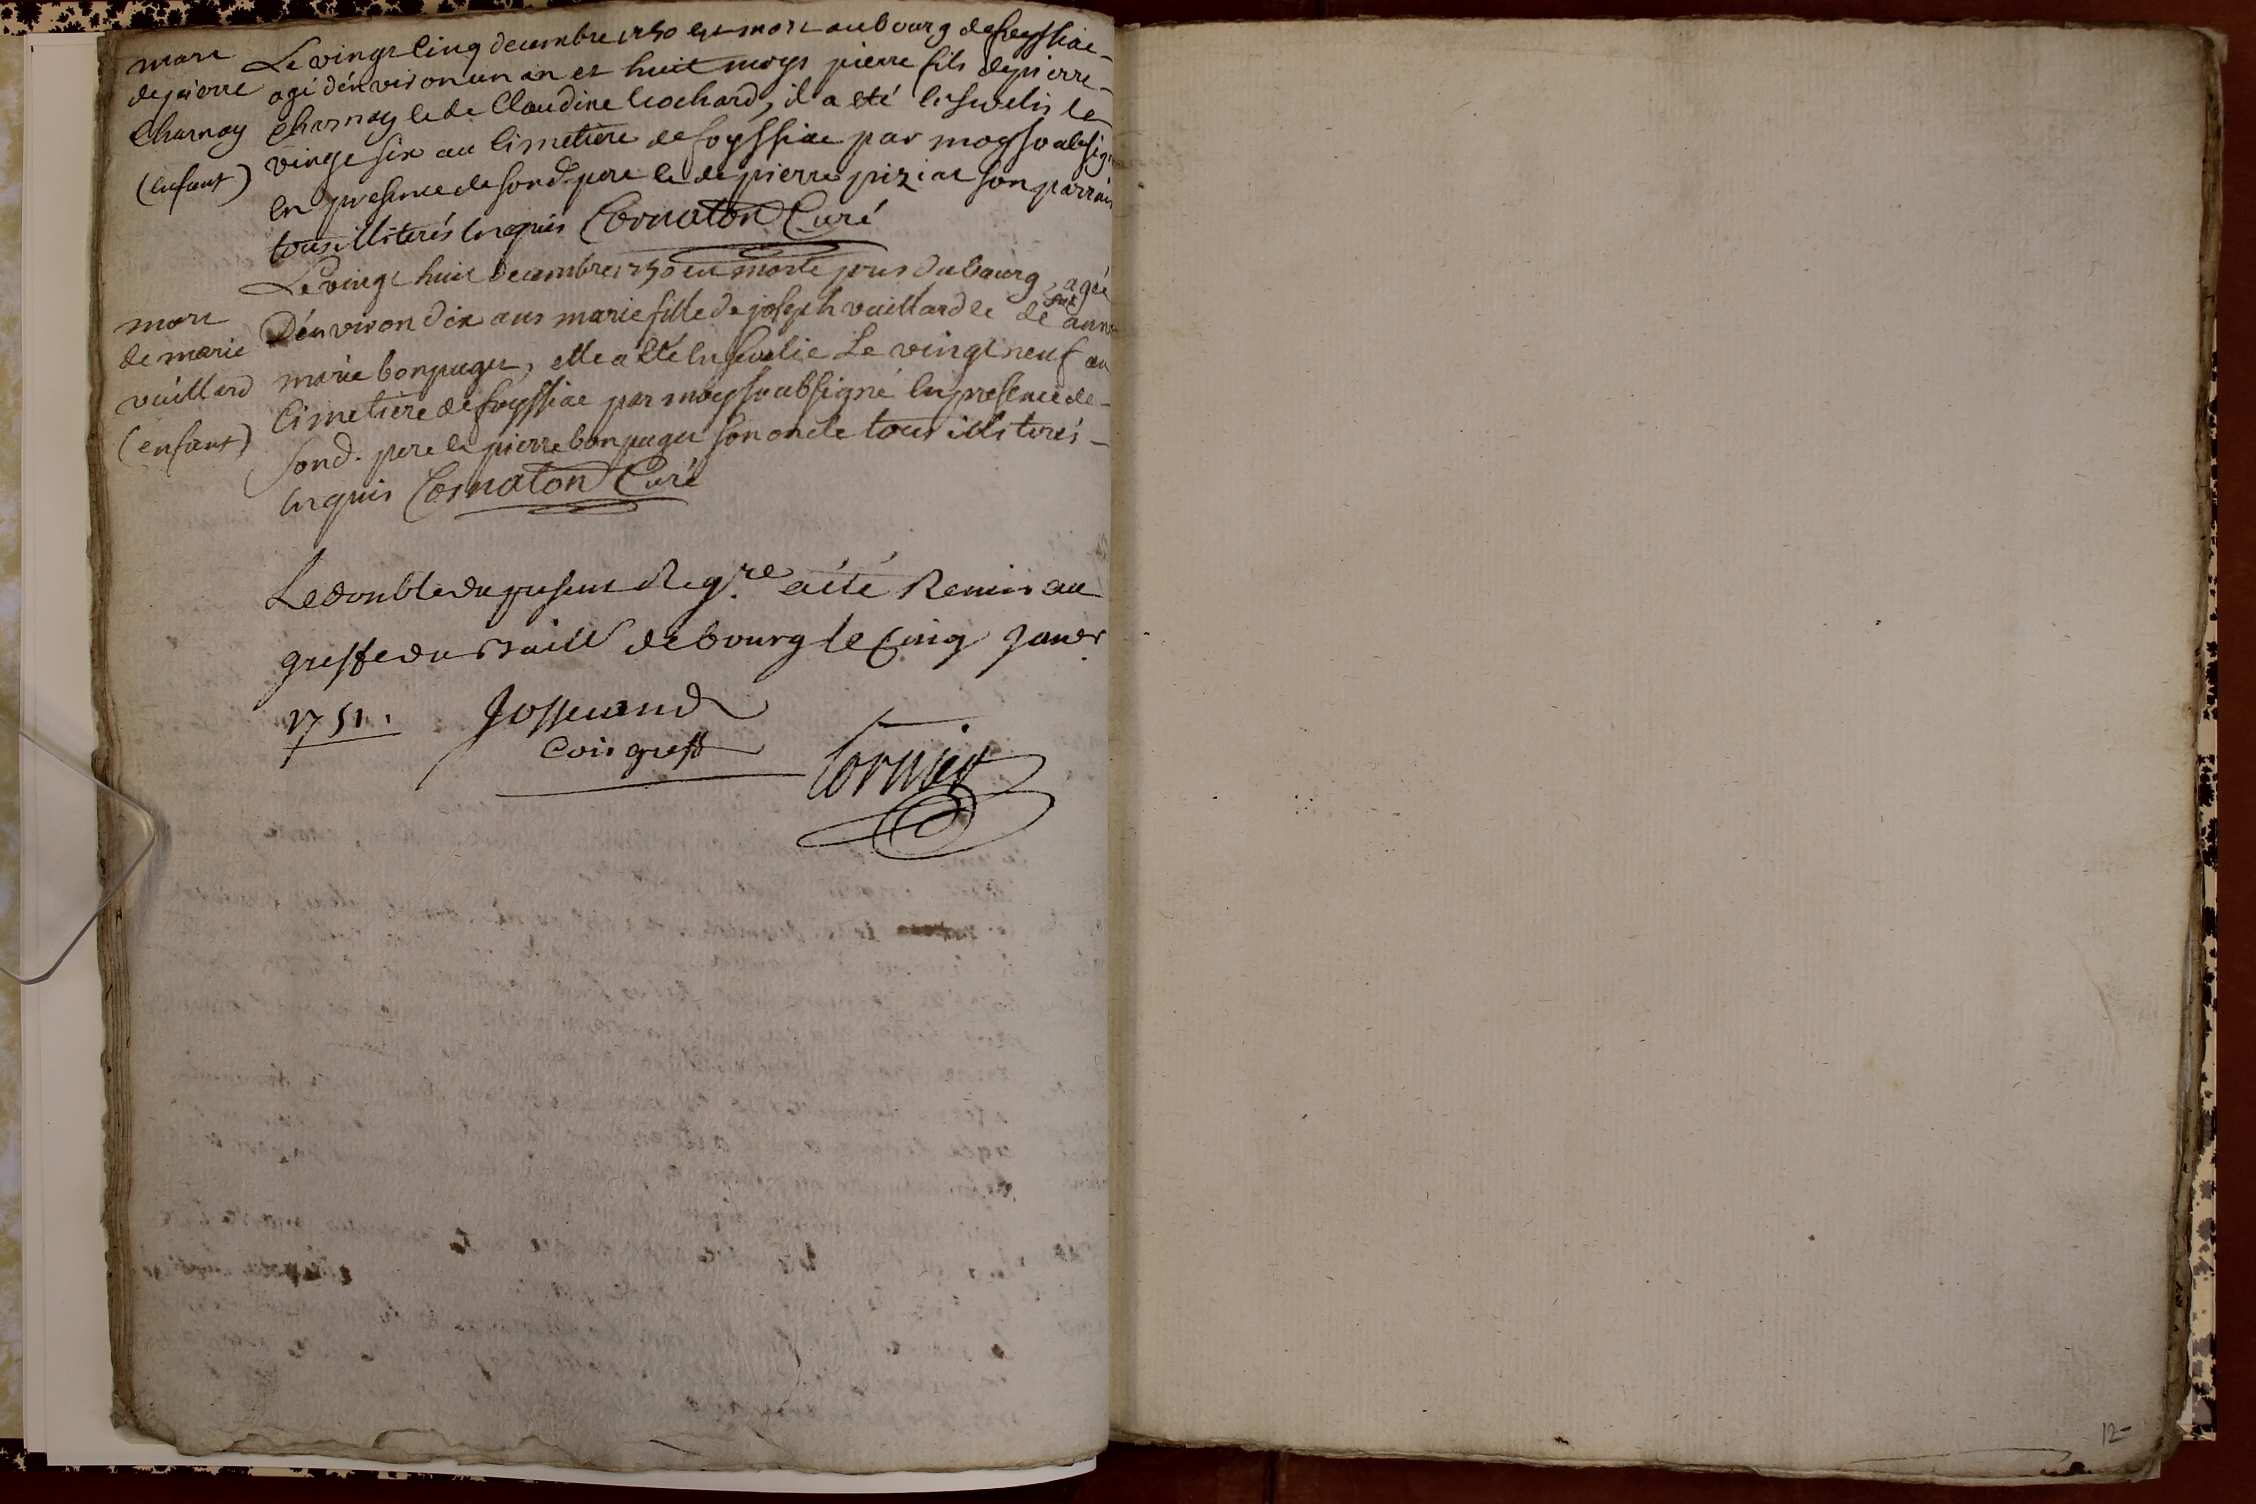 mort
de pierre
Charnay
(enfant)
Le vingt cinq decembre 1750 est mort au bourg de foyssiac
agé d'environ un an et huit moys pierre fils de pierre
Charnay et de Claudine Cochard, il a eté ensevelis le
vingt six au Cimetiere de foyssiac par moy soubsigné
en presence de sond. pere et de pierre piziat son parrain
tous illiterés enquis Cornaton Curé
mort
de marie
vuillard
(enfant)
Le vingt huit decembre 1750 est morte pres du bourg, agée
D'environ dix ans marie fille de joseph vuillard et de anne
marie bonpuguer, elle a eté ensevelie Le vingt neuf au
Cimetiere de foyssiac par moy soubsigné en presence de
sond. pere et pierre bonpuguer son oncle tous illiterés
enquis Cornaton Curé
Le double du present Reg.re a été Remis au
greffe du Baill. de bourg le Cinq Janv.r
1751. Josserand
Com greff
Cornier
12